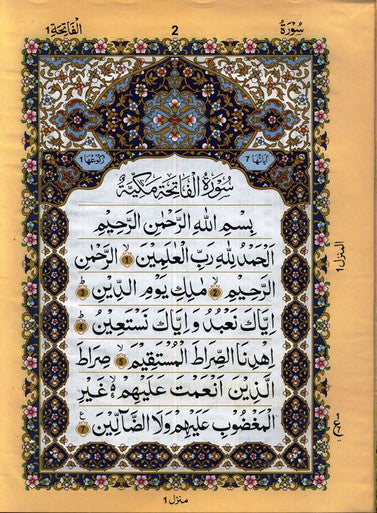 سُوْرَةُ
2
اَلْفَاتِحَة 1
اٰيَاتُهَا 7
رُكُوْعُهَا 1
سُوْرَةُ الْفَاتِحَةِ مَكِّيَّةٌ
بِسْمِ اللهِ الرَّحْمٰنِ الرَّحِيْمِ
اَلْحَمْدُ لِلّٰهِ رَبِّ الْعٰلَمِيْنَ ۱ الرَّحْمٰنِ
الرَّحِيْمِ ۲ مٰلِكِ يَوْمِ الدِّيْنِ ۳
اِيَّاكَ نَعْبُدُ وَ اِيَّاكَ نَسْتَعِيْنُ ۴
اِهْدِنَا الصِّرَاطَ الْمُسْتَقِيْمَ ۵ صِرَاطَ
الَّذِيْنَ اَنْعَمْتَ عَلَيْهِمْ ۶ غَيْرِ
الْمَغْضُوْبِ عَلَيْهِمْ وَلَا الضَّآلِّيْنَ ۷
المنزل 1
منزل 1